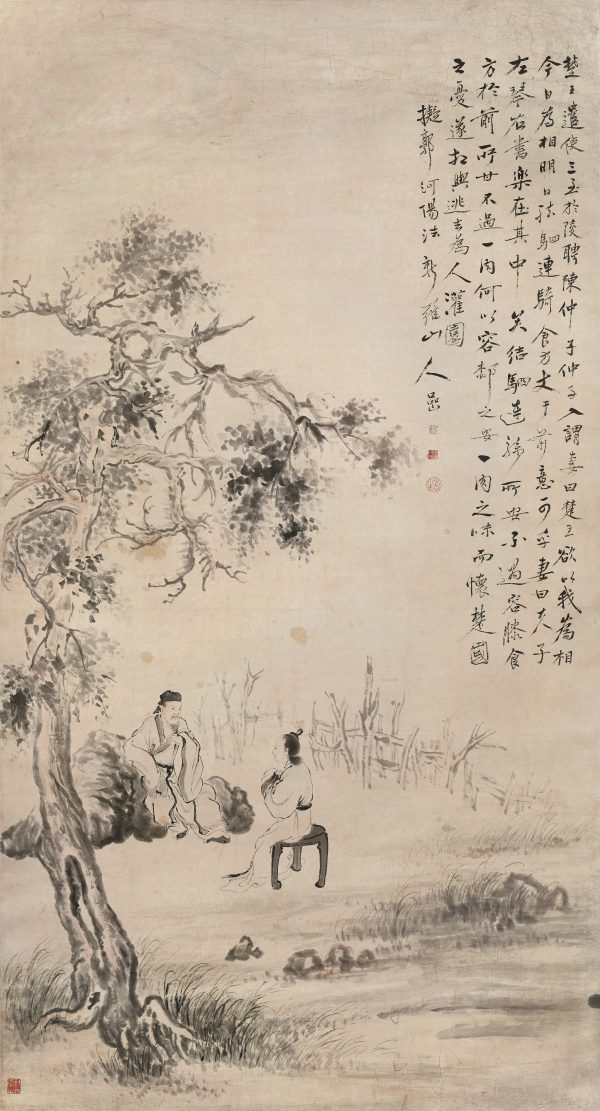 楚王遣使三至於陵聘陳仲子仲子入謂妻曰楚王欲以我為相
今日為相明日結駟連騎食方丈于前意可乎妻曰夫子
左琴右書樂在其中矣結駟連騎所安不過容膝食
方於前所甘不過一肉何以容膝之安一肉之味而懷楚國
之憂遂相與逃去為人灌園
擬郭河陽法新羅山人嵒